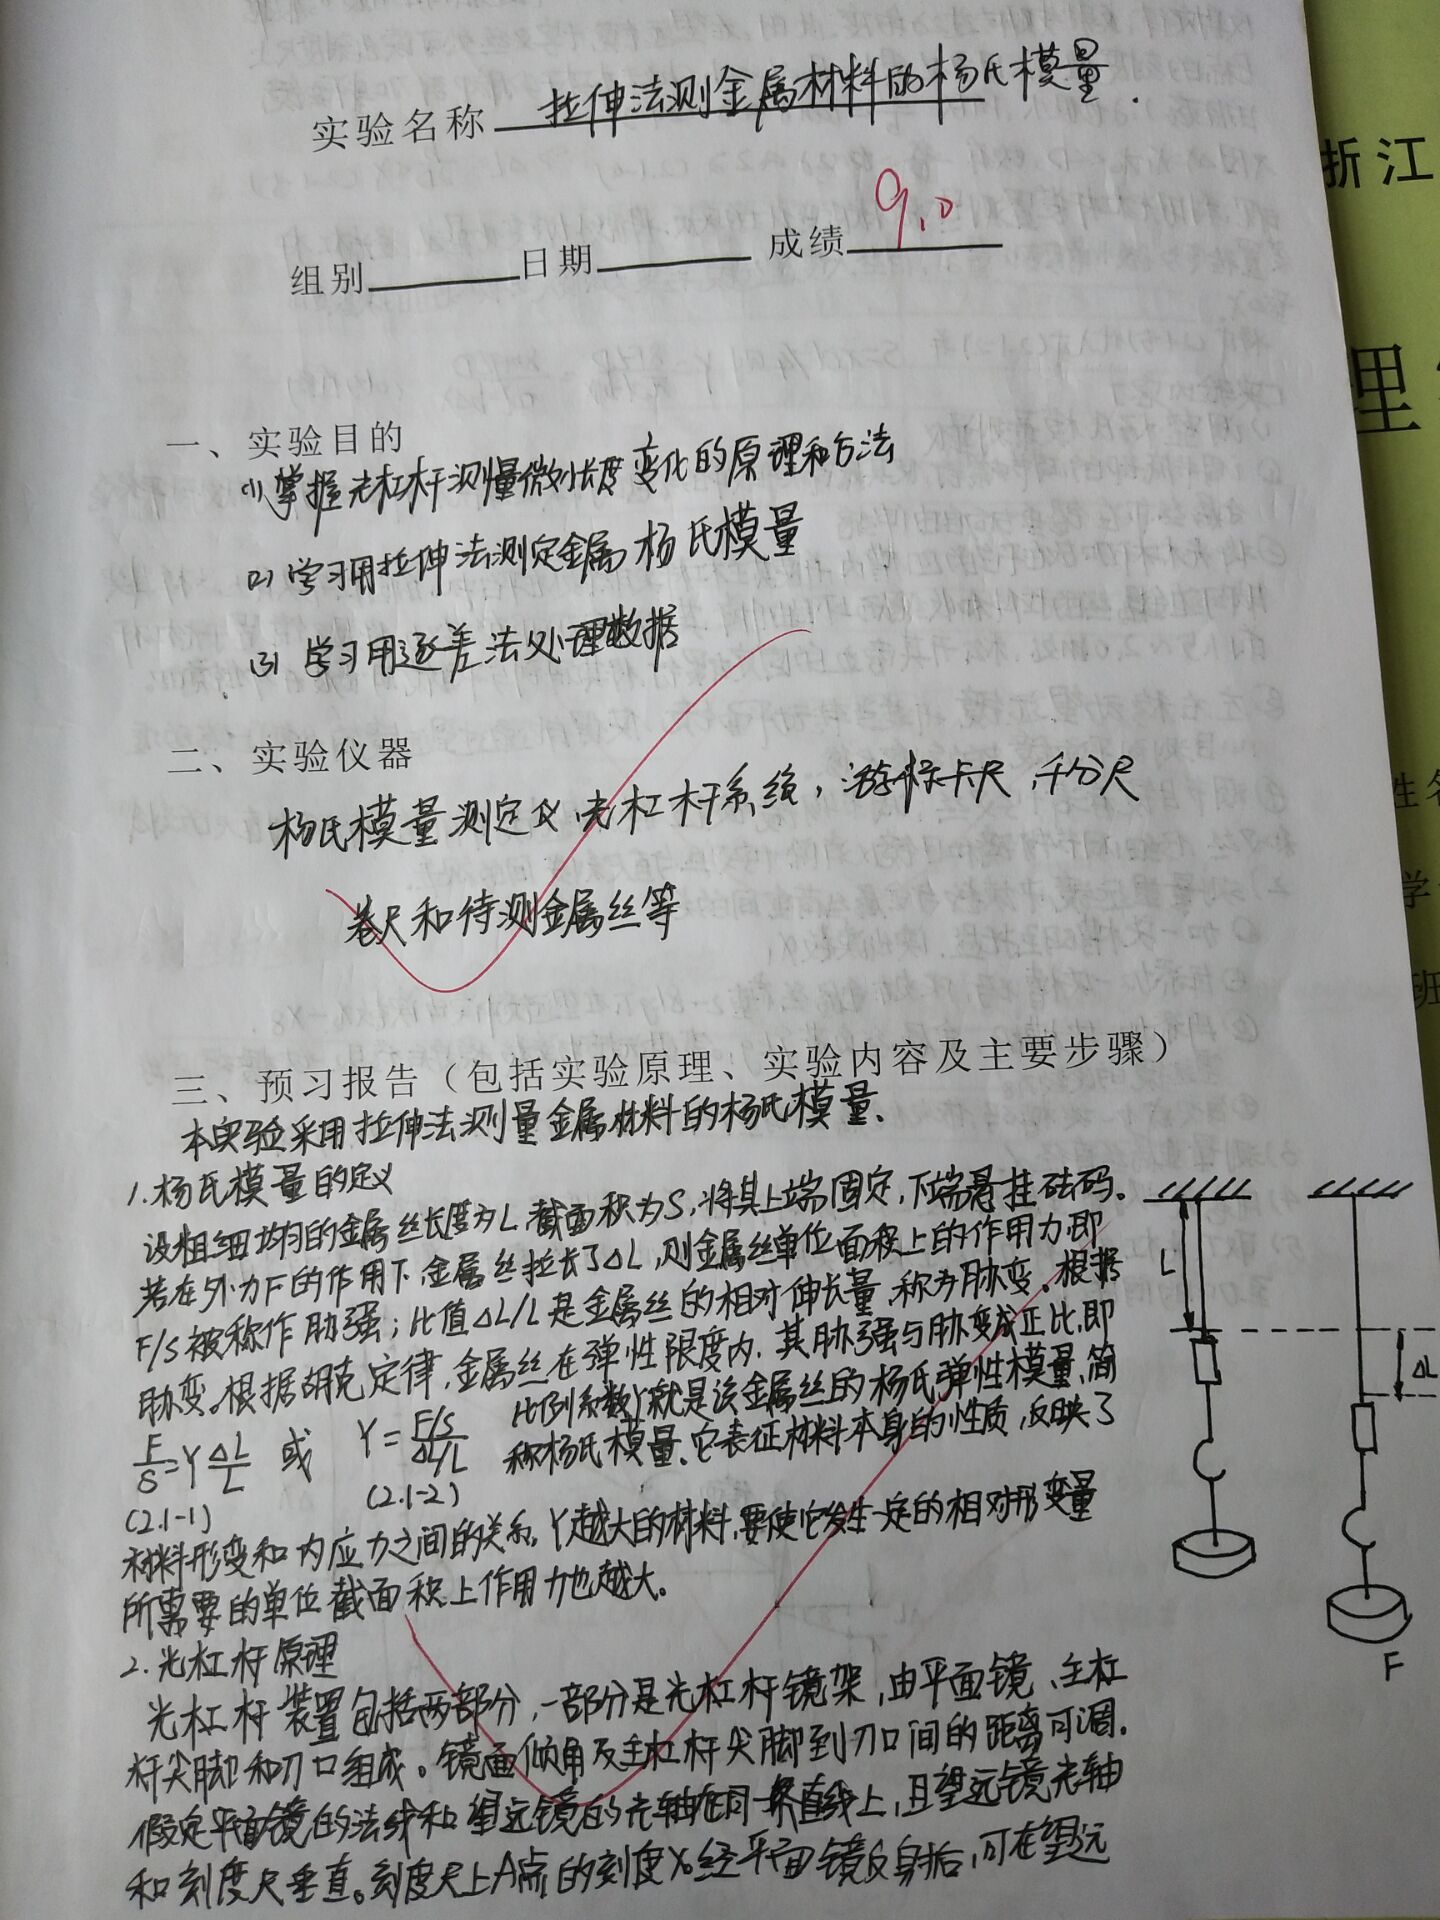 实验名称 拉伸法测金属材料的杨氏模量.
组别 日期 成绩 9.0
一、实验目的
(1) 掌握光杠杆测量微小长度变化的原理和方法
(2) 学习用拉伸法测定金属杨氏模量
(3) 学习用逐差法处理数据
二、实验仪器
杨氏模量测定仪,光杠杆系统,游标卡尺,千分尺
卷尺和待测金属丝等
三、预习报告（包括实验原理、实验内容及主要步骤）
本实验采用拉伸法测量金属材料的杨氏模量.
1.杨氏模量的定义
设粗细均匀的金属丝长度为L,截面积为S,将其上端固定,下端悬挂砝码.
若在外力F的作用下,金属丝拉长了ΔL,则金属丝单位面积上的作用力即
F/S被称作胁强;比值ΔL/L是金属丝的相对伸长量,称为胁变.根据
胁变。根据胡克定律,金属丝在弹性限度内,其胁强与胁变成正比,即
F/S=YΔL/L 或 Y=(F/S)/(ΔL/L) 比例系数Y就是该金属丝的杨氏弹性模量,简
(2.1-1) (2.1-2) 称杨氏模量.它表征材料本身的性质,反映了
材料形变和内应力之间的关系.Y越大的材料,要使它发生一定的相对形变量
所需要的单位截面积上作用力也越大。
2.光杠杆原理
光杠杆装置包括两部分,一部分是光杠杆镜架,由平面镜、主杠
杆尖脚和刀口组成。镜面倾角及主杠杆尖脚到刀口间的距离可调.
假定平面镜的法线和望远镜的光轴在同一条直线上,且望远镜光轴
和刻度尺垂直。刻度尺上A点的刻度X₀经平面镜反射后,可在望远
L
ΔL
F
浙江
理
姓名
学
班